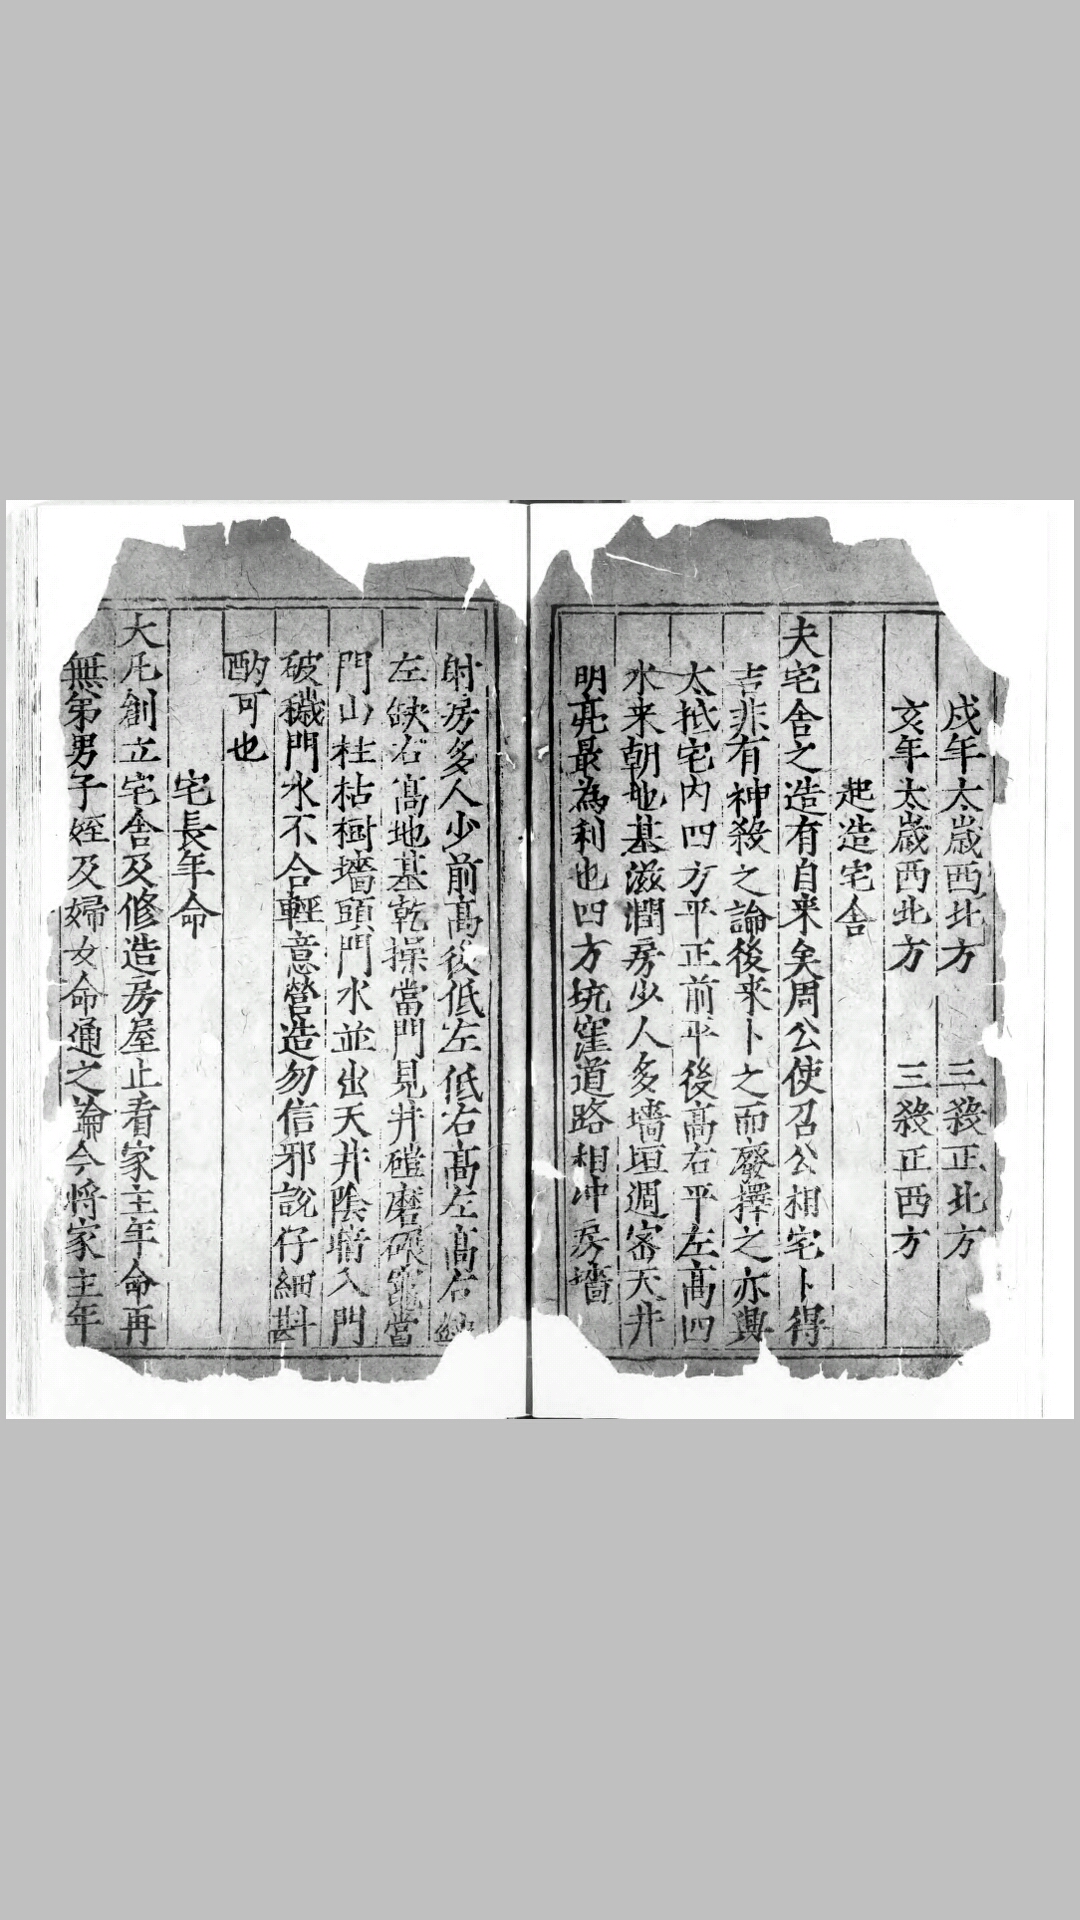 戌年太歲西北方 三殺正北方
亥年太歲西北方 三殺正西方
起造宅舎
夫宅舍之造有自来矣周公使召公相宅卜得
吉非有神殺之論後来卜之而廢擇之亦與
太抵宅内四方平正前平後高右平左高四
水来朝地基滋潤房少人多墻垣週宻天井
明亮最為利也四方坑窪道路相冲房墻
射房多人少前高後低左低右高左高右缺
左缺右高地基乾操當門見井磑磨碾當
門山柱枯樹墻頭門水並出天井陰墻入門
破穢門水不合輕意營造勿信邪説仔細斟
酌可也
宅長年命
大凡創立宅舍及修造房屋止看家主年命再
無弟男子姪及婦女命通之論今將家主年